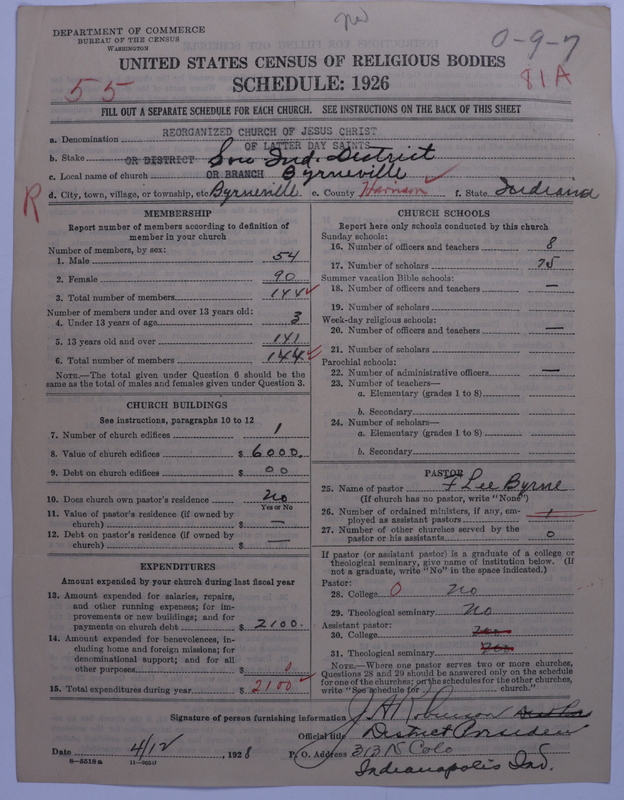 DEPARTMENT OF COMMERCE
BUREAU OF THE CENSUS
WASHINGTON
0-9-7
UNITED STATES CENSUS OF RELIGIOUS BODIES
55 SCHEDULE: 1926 81A
FILL OUT A SEPARATE SCHEDULE FOR EACH CHURCH. SEE INSTRUCTIONS ON THE BACK OF THIS SHEET
REORGANIZED CHURCH OF JESUS CHRIST
a. Denomination OF LATTER DAY SAINTS
b. Stake OR DISTRICT Sou Ind. District
c. Local name of church OR BRANCH Byrneville
R
d. City, town, village, or township, etc. Byrneville e. County Harrison f. State Indiana
MEMBERSHIP
Report number of members according to definition of
member in your church
Number of members, by sex:
1. Male 54
2. Female 90
3. Total number of members 144
Number of members under and over 13 years old:
4. Under 13 years of age 3
5. 13 years old and over 141
6. Total number of members 144
NOTE.—The total given under Question 6 should be the
same as the total of males and females given under Question 3.
CHURCH BUILDINGS
See instructions, paragraphs 10 to 12
7. Number of church edifices 1
8. Value of church edifices $ 6000.
9. Debt on church edifices $ 00
10. Does church own pastor's residence No
Yes or No
11. Value of pastor's residence (if owned by
church) $ —
12. Debt on pastor's residence (if owned by
church) $ —
EXPENDITURES
Amount expended by your church during last fiscal year
13. Amount expended for salaries, repairs,
and other running expenses; for im-
provements or new buildings; and for
payments on church debt $ 2100.
14. Amount expended for benevolences, in-
cluding home and foreign missions; for
denominational support; and for all
other purposes $ 0
15. Total expenditures during year $ 2100
CHURCH SCHOOLS
Report here only schools conducted by this church
Sunday schools:
16. Number of officers and teachers 8
17. Number of scholars 75
Summer vacation Bible schools:
18. Number of officers and teachers —
19. Number of scholars
Week-day religious schools:
20. Number of officers and teachers —
21. Number of scholars
Parochial schools:
22. Number of administrative officers —
23. Number of teachers—
a. Elementary (grades 1 to 8)
b. Secondary
24. Number of scholars—
a. Elementary (grades 1 to 8)
b. Secondary
PASTOR
25. Name of pastor F Lee Byrne
(If church has no pastor, write "None")
26. Number of ordained ministers, if any, em-
ployed as assistant pastors 1
27. Number of other churches served by the
pastor or his assistants 0
If pastor (or assistant pastor) is a graduate of a college or
theological seminary, give name of institution below. (If
not a graduate, write "No" in the space indicated.)
Pastor:
28. College 0 No
29. Theological seminary No
Assistant pastor:
30. College
31. Theological seminary
NOTE.—Where one pastor serves two or more churches,
Questions 28 and 29 should be answered only on the schedule
for one of the churches; on the schedules for the other churches,
write "See schedule for church."
Signature of person furnishing information J A Robinson
Official title District President
Date 4/12, 1928 P. O. Address 313 N Colo
8—5518a Indianapolis Ind.